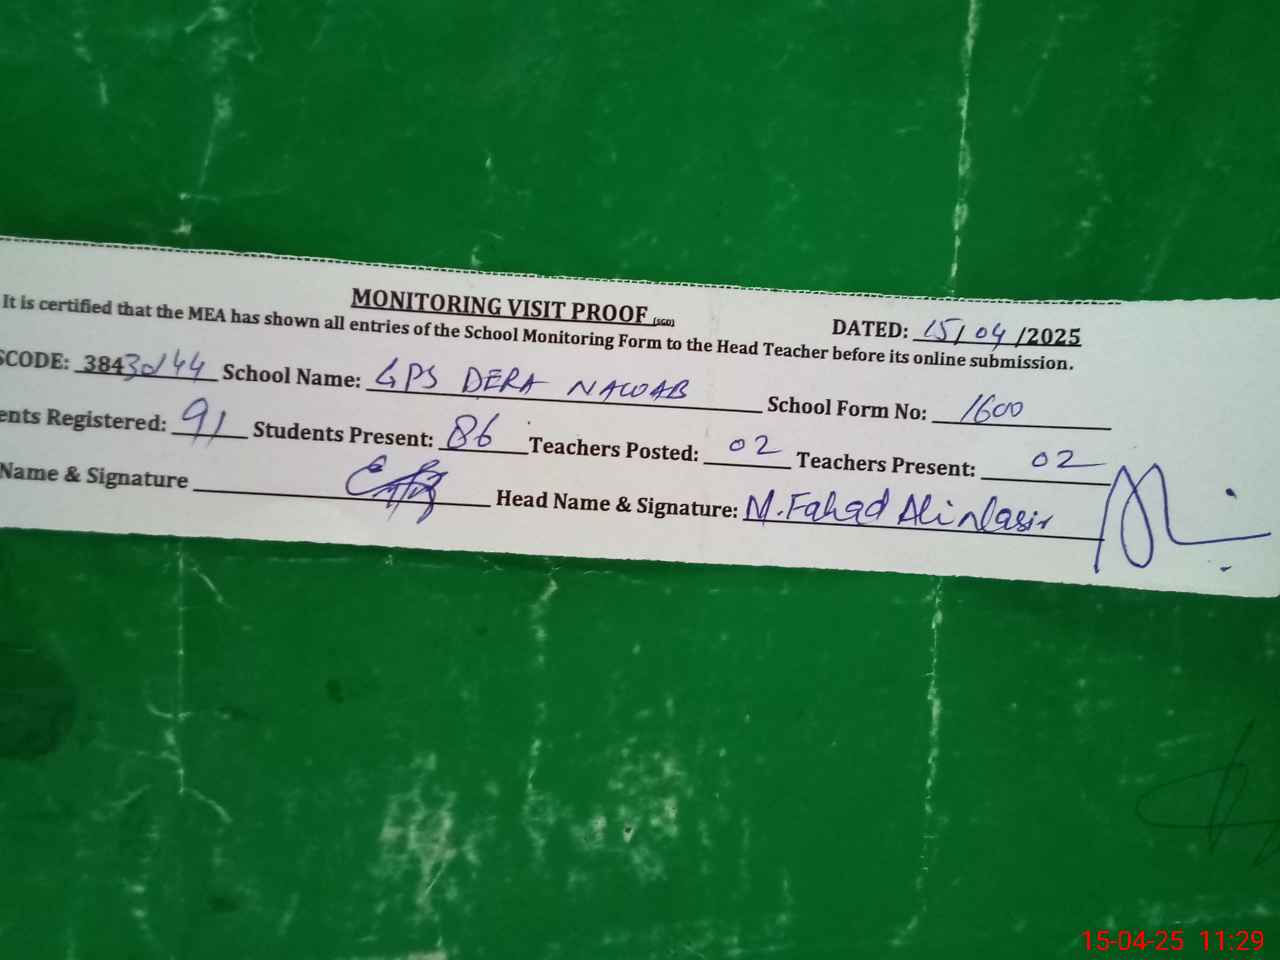 MONITORING VISIT PROOF (SGD)
DATED: 15/04/2025
It is certified that the MEA has shown all entries of the School Monitoring Form to the Head Teacher before its online submission.
SCODE: 38430144 School Name: GPS DERA NAWAB School Form No: 1600
ents Registered: 91 Students Present: 86 Teachers Posted: 02 Teachers Present: 02
Name & Signature Head Name & Signature: M. Fahad Ali Nasir
15-04-25 11:29